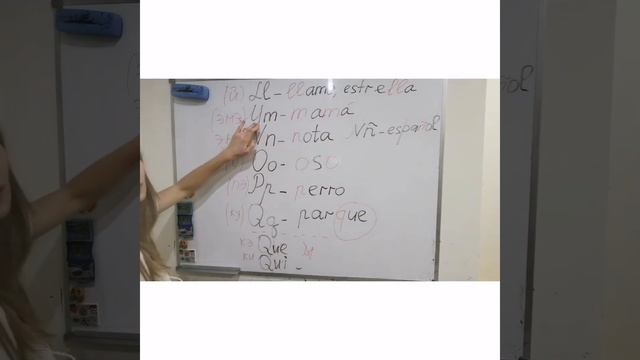 (й) Ll - llama, estrella
(эмэ) Mm - mamá
Nn - nota Ññ - español
Oo - oso
(пэ) Pp - perro
(ку) Qq - parque
кэ Que
ки Qui -